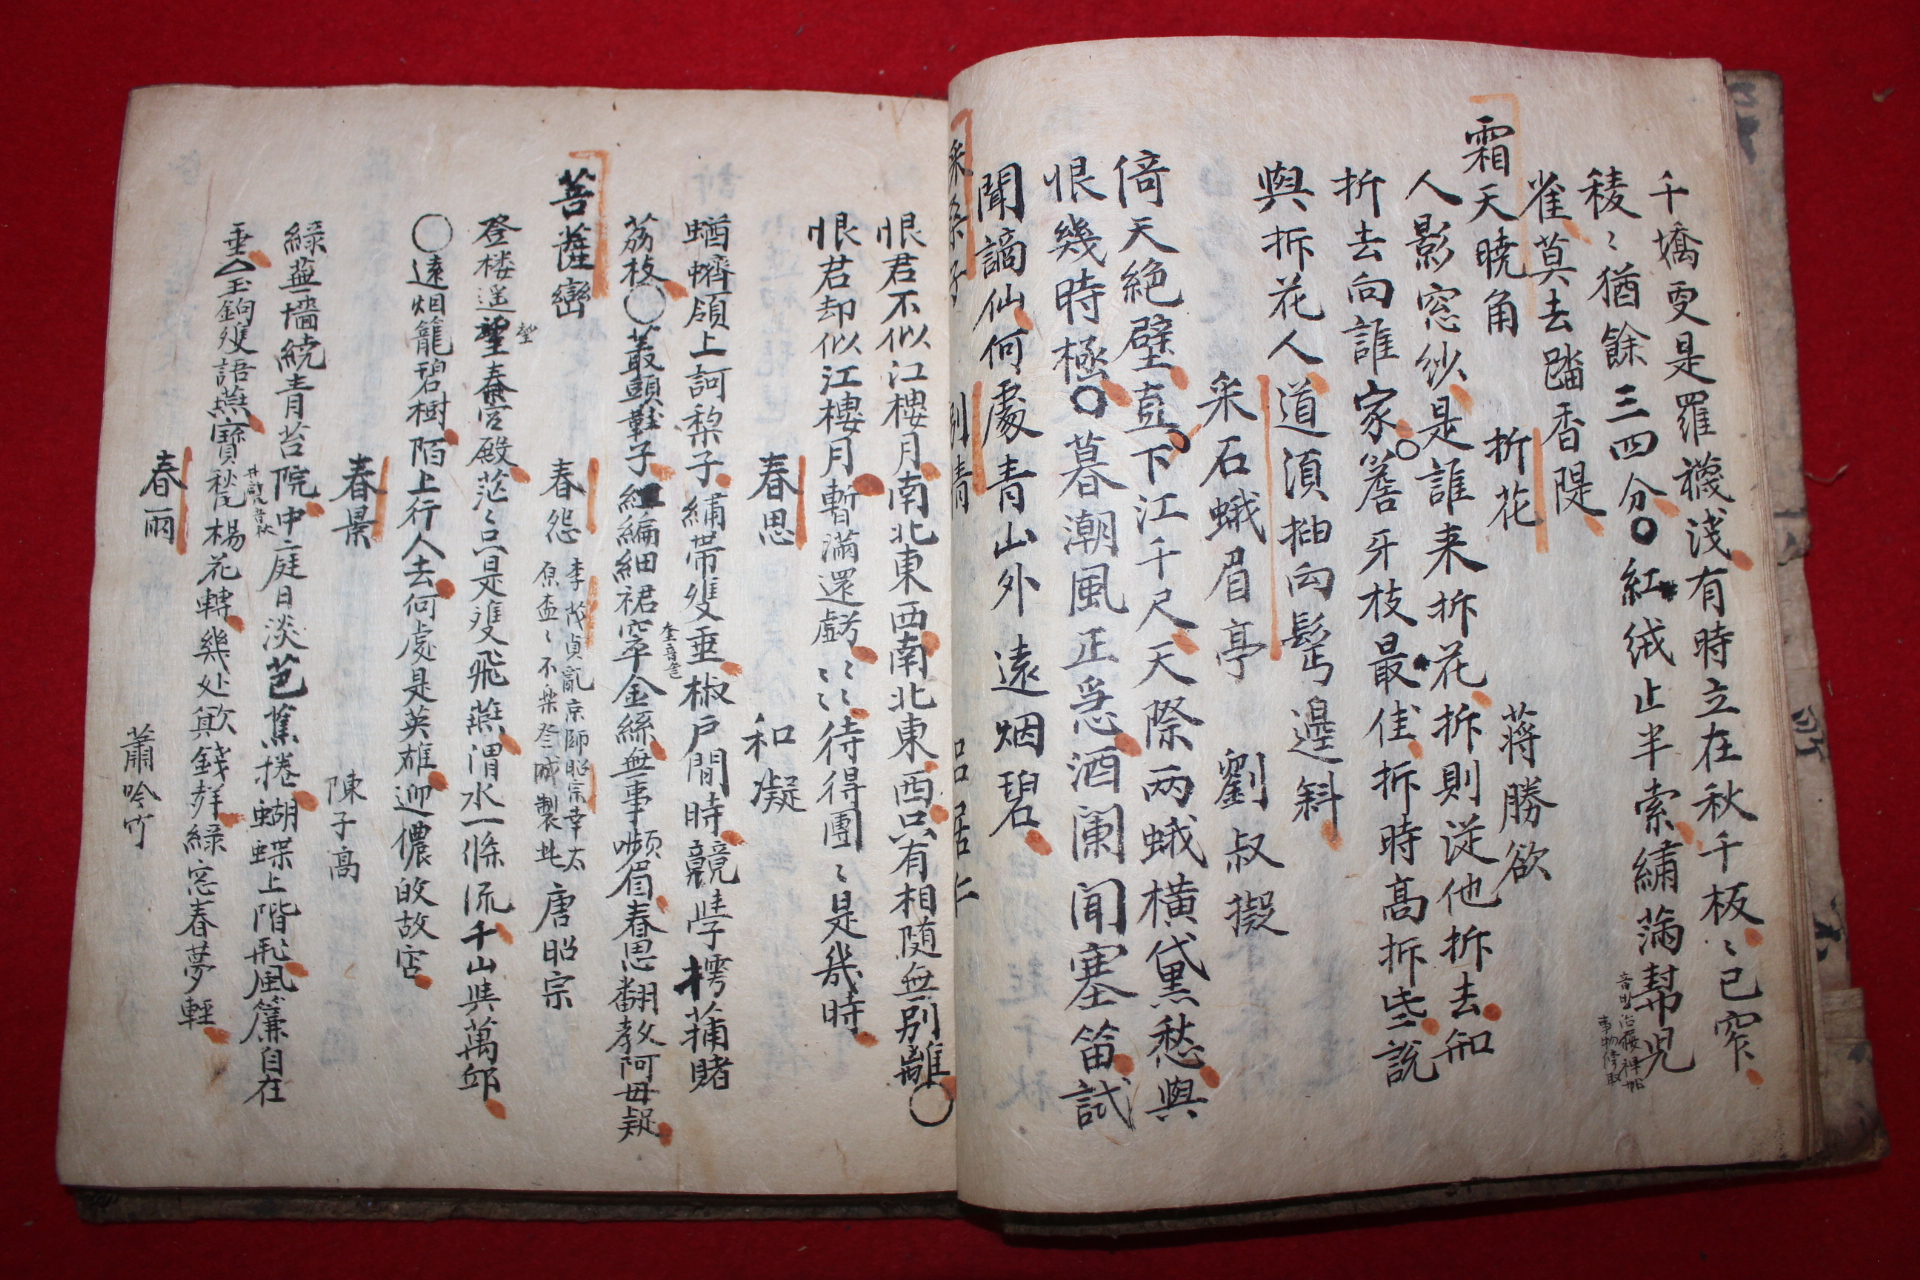 千嬌更是羅襪淺有時立在秋千板〻已窄
稜〻猶餘三四分〇紅絨止半索繡滿幫兒
雀莫去踏香隄
霜天曉角 折花 蔣勝欲
人影窓紗是誰来折花折則從他折去知
折去向誰家〇簷牙枝最佳折時高折些說
與折花人道須揷向鬂邊斜
采石蛾眉亭 劉叔擬
倚天絶壁直下江千尺天際两蛾横黛愁與
恨幾時極〇暮潮風正急酒闌聞塞笛試
聞謫仙何處青山外遠烟碧
采桑子 別情 呂居仁
恨君不似江樓月南北東西南北東西只有相随無别離〇
恨君却似江樓月暫滿還虧〻〻待得團〻是幾時
春思 和凝
蝤蠐領上訶梨子繡帶雙垂椒戶間時競學摴蒱賭
荔枝〇叢頭鞋子紅編細裙窣金絲無事嚬眉春思翻教阿母疑
菩薩蠻
春怨 李茂貞亂京師昭宗幸太原盃〻不楽登城製此 唐昭宗
登楼遥望秦宫殿茫〻只是雙飛燕渭水一條流千山與萬邱
〇遠烟籠碧樹陌上行人去何處是英雄迎儂故故宫
春景 陳子高
綠蕪墻繞青苔院中庭日淡芭蕉捲蝴蝶上階飛風簾自在
垂〇玉鉤雙語燕寶甃楊花轉幾处欼錢聲綠窓春夢輕
春雨 蕭吟竹